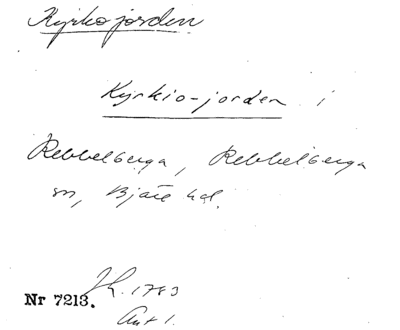 Kyrkojorden
Kyrkio-jorden i
Rebbelberga, Rebbelberga
sn, Bjäre hd.
Nr 7213. Jh. 1783
Akt 1.